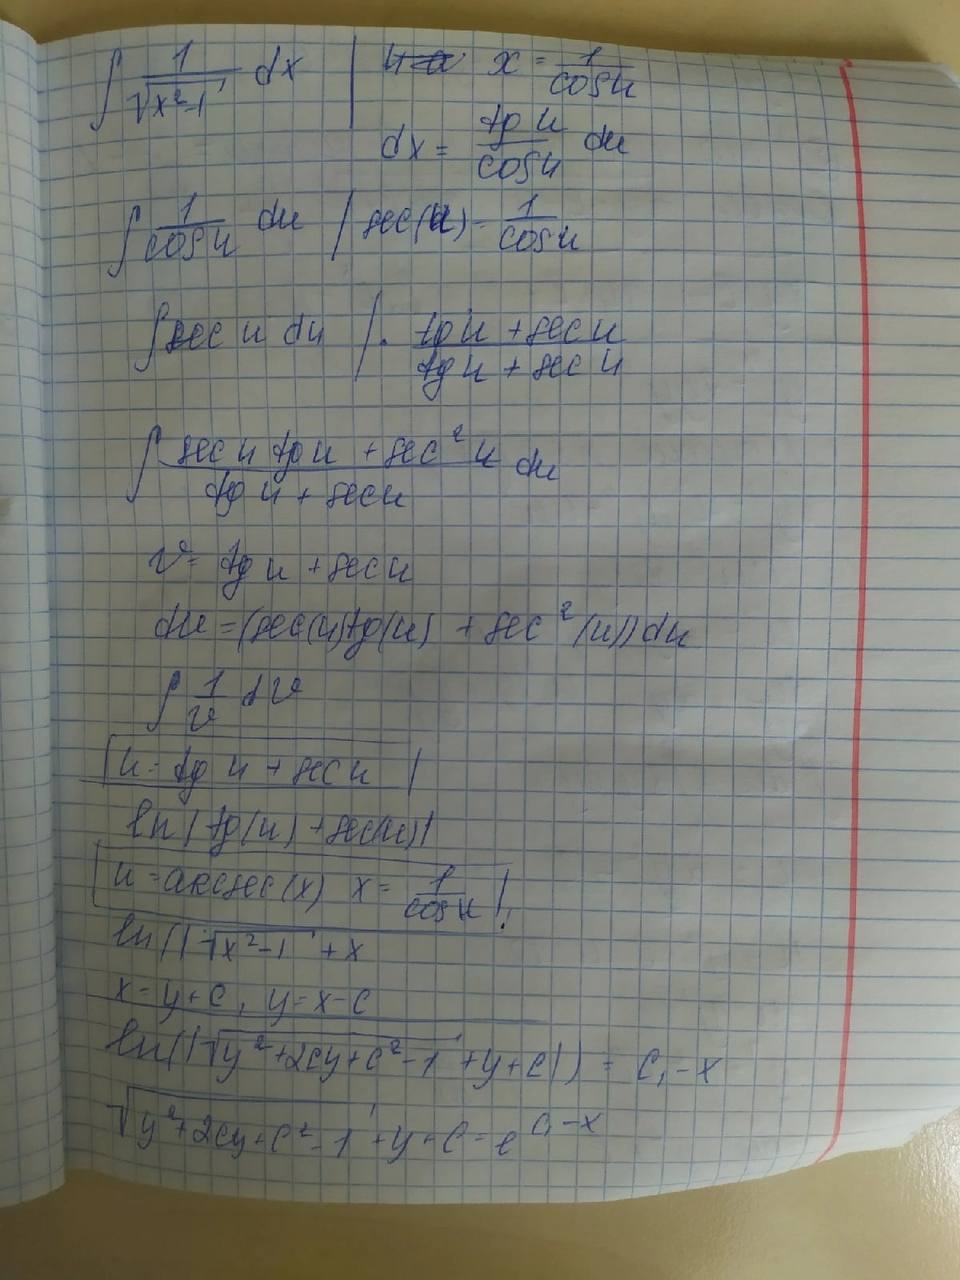 ∫ 1/√(x²-1) dx | x = 1/cos u
dx = tg u/cos u du
∫ 1/cos u du | sec(u) - 1/cos u
∫ sec u du | · (tg u + sec u)/(tg u + sec u)
∫ (sec u tg u + sec² u)/(tg u + sec u) du
v = tg u + sec u
du = (sec(u)tg(u) + sec²(u))du
∫ 1/v dv
u = tg u + sec u
ln|tg(u) + sec(u)|
u = arcsec(x) x = 1/cos u !
ln(|√(x²-1) + x
x = y + c, y = x - c
ln(|√(y²+2cy+c²-1) + y + c|) = c₁ - x
√(y²+2cy+c²-1) + y + c = e^(c₁-x)